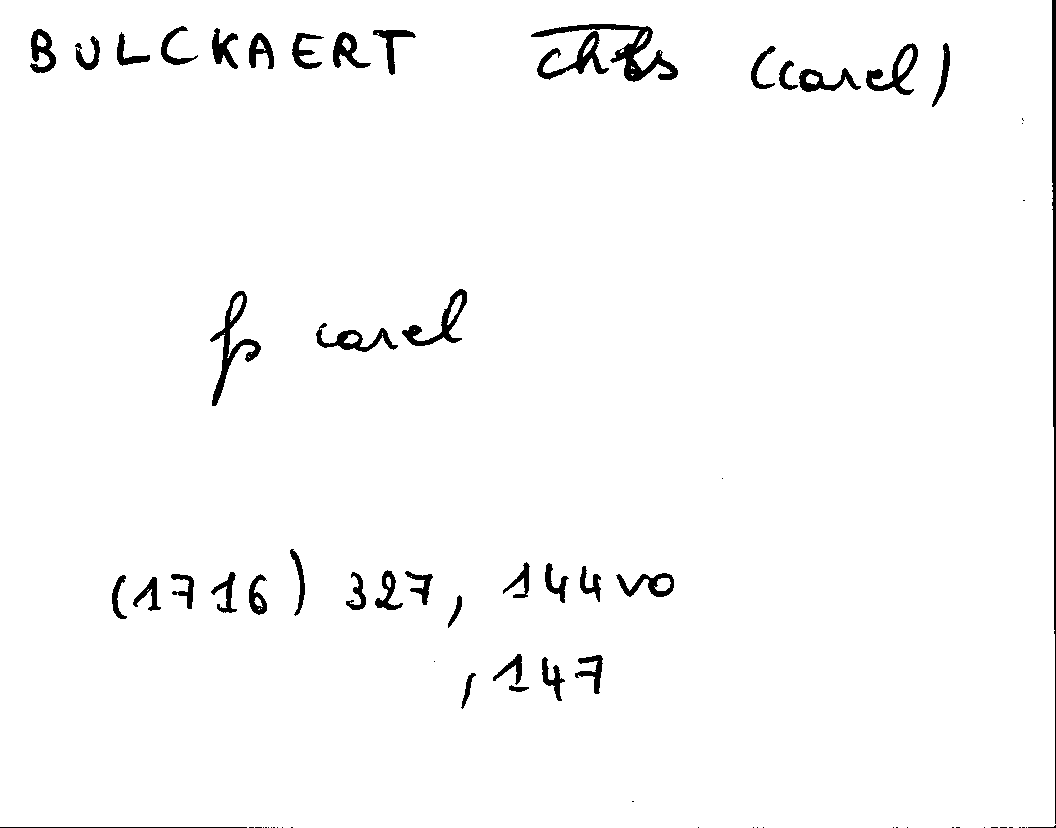 BULCKAERT chles (carel)
fs carel
(1716) 327, 144vo
, 147